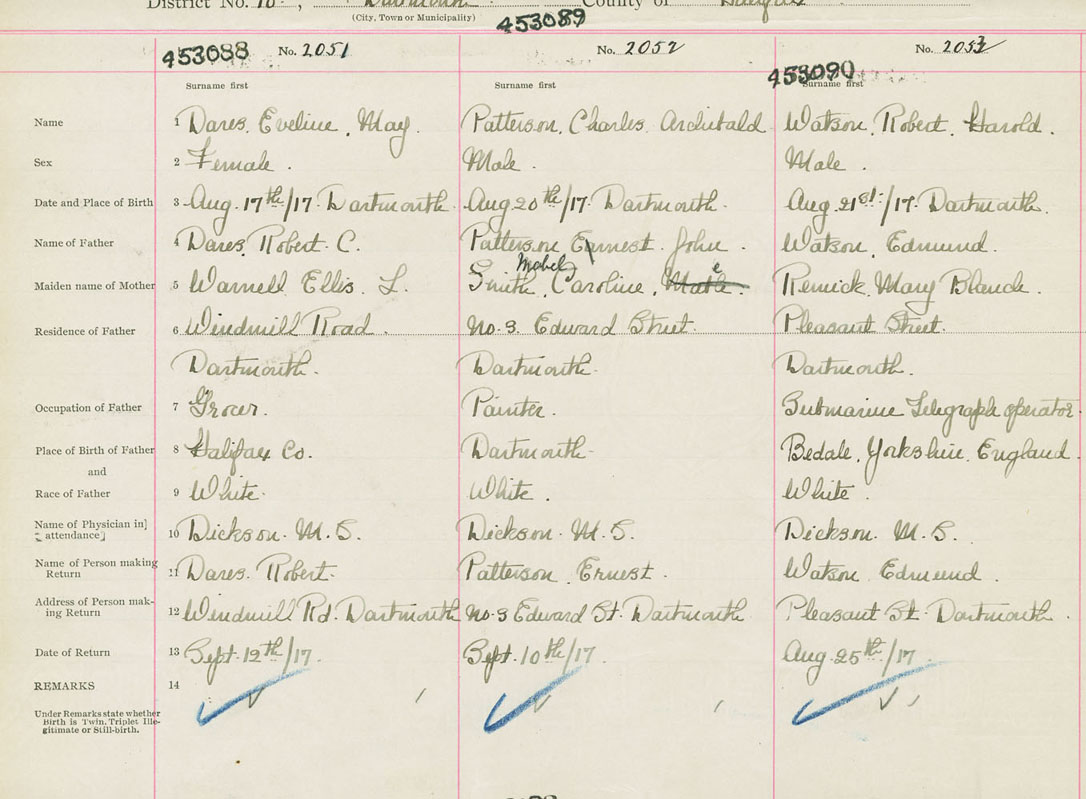 District No. 10, Dartmouth. County of Halifax
(City, Town or Municipality)
453089
453088 No. 2051
No. 2052
No. 2053
453090
Surname first
Surname first
Surname first
Name 1 Dares, Eveline, May. Patterson, Charles Archibald Watson, Robert, Harold.
Sex 2 Female. Male. Male.
Date and Place of Birth 3 Aug. 17th/17. Dartmouth. Aug 20th/17. Dartmouth. Aug. 21st/17. Dartmouth.
Name of Father 4 Dares, Robert. C. Patterson Ernest. John. Watson, Edmund.
Mabel
Maiden name of Mother 5 Warnell Ellis. L. Smith, Caroline, Remick, Mary Blanche.
Residence of Father 6 Windmill Road. No. 3. Edward Street. Pleasant Street.
Dartmouth. Dartmouth. Dartmouth.
Occupation of Father 7 Grocer. Painter. Submarine Telegraph operator.
Place of Birth of Father 8 Halifax Co. Dartmouth. Bedale, Yorkshire, England.
and
Race of Father 9 White. White. White.
Name of Physician in]
attendance] 10 Dickson. M. S. Dickson. M. S. Dickson. M. S.
Name of Person making
Return 11 Dares. Robert. Patterson, Ernest. Watson, Edmund.
Address of Person mak-
ing Return 12 Windmill Rd. Dartmouth No. 3 Edward St. Dartmouth Pleasant St. Dartmouth.
Date of Return 13 Sept. 12th/17. Sept. 10th/17. Aug. 25th/17.
REMARKS 14
Under Remarks state whether
Birth is Twin, Triplet Ille-
gitimate or Still-birth.